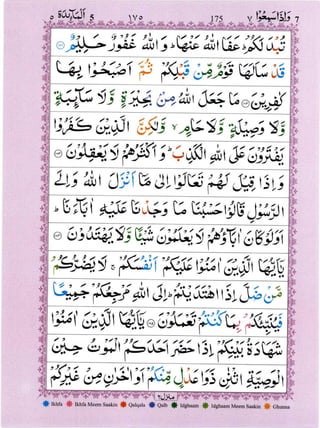 المآئدة ٥ 5 ١٧٥ 175 ٧ واذا سمعوا 7
تُبْدَ لَكُمْ ؕ عَفَا اللّٰهُ عَنْهَا ؕ وَ اللّٰهُ غَفُوْرٌ حَلِيْمٌ
قَدْ سَاَلَهَا قَوْمٌ مِّنْ قَبْلِكُمْ ثُمَّ اَصْبَحُوْا بِهَا
كٰفِرِيْنَ مَا جَعَلَ اللّٰهُ مِنْۢ بَحِيْرَةٍ وَّ لَا سَآىِٕبَةٍ
وَّ لَا وَصِيْلَةٍ وَّ لَا حَامٍ ۙ وَّ لٰكِنَّ الَّذِيْنَ كَفَرُوْا
يَفْتَرُوْنَ عَلَى اللّٰهِ الْكَذِبَ ؕ وَ اَكْثَرُهُمْ لَا يَعْقِلُوْنَ
وَ اِذَا قِيْلَ لَهُمْ تَعَالَوْا اِلٰى مَاۤ اَنْزَلَ اللّٰهُ وَ اِلَى
الرَّسُوْلِ قَالُوْا حَسْبُنَا مَا وَجَدْنَا عَلَيْهِ اٰبَآءَنَا ؕ
اَوَ لَوْ كَانَ اٰبَآؤُهُمْ لَا يَعْلَمُوْنَ شَيْـًٔا وَّ لَا يَهْتَدُوْنَ
يٰۤاَيُّهَا الَّذِيْنَ اٰمَنُوْا عَلَيْكُمْ اَنْفُسَكُمْ ۚ لَا يَضُرُّكُمْ
مَّنْ ضَلَّ اِذَا اهْتَدَيْتُمْ ؕ اِلَى اللّٰهِ مَرْجِعُكُمْ جَمِيْعًا
فَيُنَبِّئُكُمْ بِمَا كُنْتُمْ تَعْمَلُوْنَ يٰۤاَيُّهَا الَّذِيْنَ اٰمَنُوْا
شَهَادَةُ بَيْنِكُمْ اِذَا حَضَرَ اَحَدَكُمُ الْمَوْتُ حِيْنَ
الْوَصِيَّةِ اثْنٰنِ ذَوَا عَدْلٍ مِّنْكُمْ اَوْ اٰخَرٰنِ مِنْ غَيْرِكُمْ
منزل ٢
Ikhfa Ikhfa Meem Saakin Qalqala Qalb Idgham Idgham Meem Saakin Ghunna